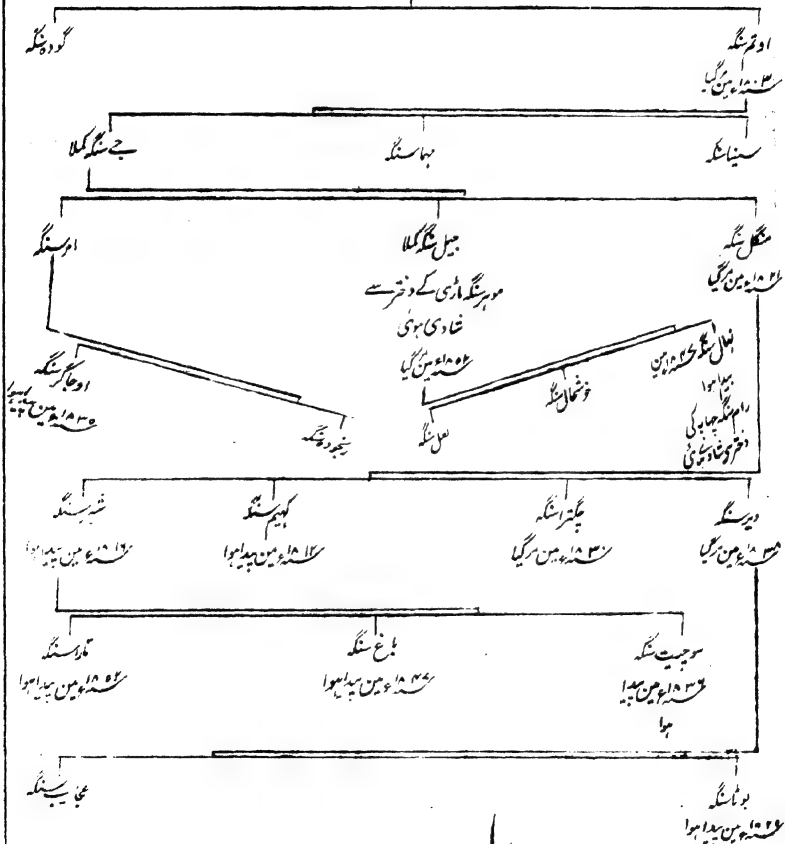 اوتم سنگہ
سنہ ۱۸۰۳ء مین مرگیا
گودہ سنگہ
سینا سنگہ
مہا سنگہ
جے سنگہ کملا
منگل سنگہ
سنہ ۱۸۲۱ء مین مرگیا
جیل سنگہ کملا
موہر سنگہ ماڑی کے دختر سے
شادی ہوئی
سنہ ۱۸۵۲ء مین مرگیا
امر سنگہ
نہال سنگہ سنہ ۱۸۴۷ء مین
پیدا ہوا
رام سنگہ چہاپہ کی
دختر شادی ہوئی
خوشحال سنگہ
لعل سنگہ
اوجاگر سنگہ
سنہ ۱۸۳۵ء مین پیدا ہوا
رنجودہ سنگہ
دیر سنگہ
سنہ ۱۸۳۸ء مین مرگیا
چگترا سنگہ
سنہ ۱۸۳۰ء مین مرگیا
کہیم سنگہ
سنہ ۱۸۱۲ء مین پیدا ہوا
شیر سنگہ
سنہ ۱۸۱۶ء مین پیدا ہوا
سوچیت سنگہ
سنہ ۱۸۳۶ء مین پیدا
ہوا
باغ سنگہ
سنہ ۱۸۴۷ء مین پیدا ہوا
تارا سنگہ
سنہ ۱۸۵۲ء مین پیدا ہوا
بوٹا سنگہ
سنہ ۱۸۲۹ء مین پیدا ہوا
عجایب سنگہ